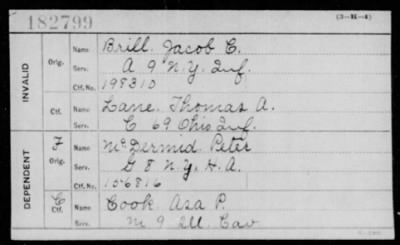 182799
(3-K-4)
INVALID
Orig.
Name Brill. Jacob C.
Serv. A 9 N.Y. Inf.
Ctf. No. 198310
Ctf.
Name Lane. Thomas A.
Serv. C 69 Ohio Inf.
DEPENDENT
F
Orig.
Name McDermid Peter
Serv. G 8 N.Y. H.A.
Ctf. No. 156816
C
Ctf.
Name Cook Asa P.
Serv. M 9 Ill Cav